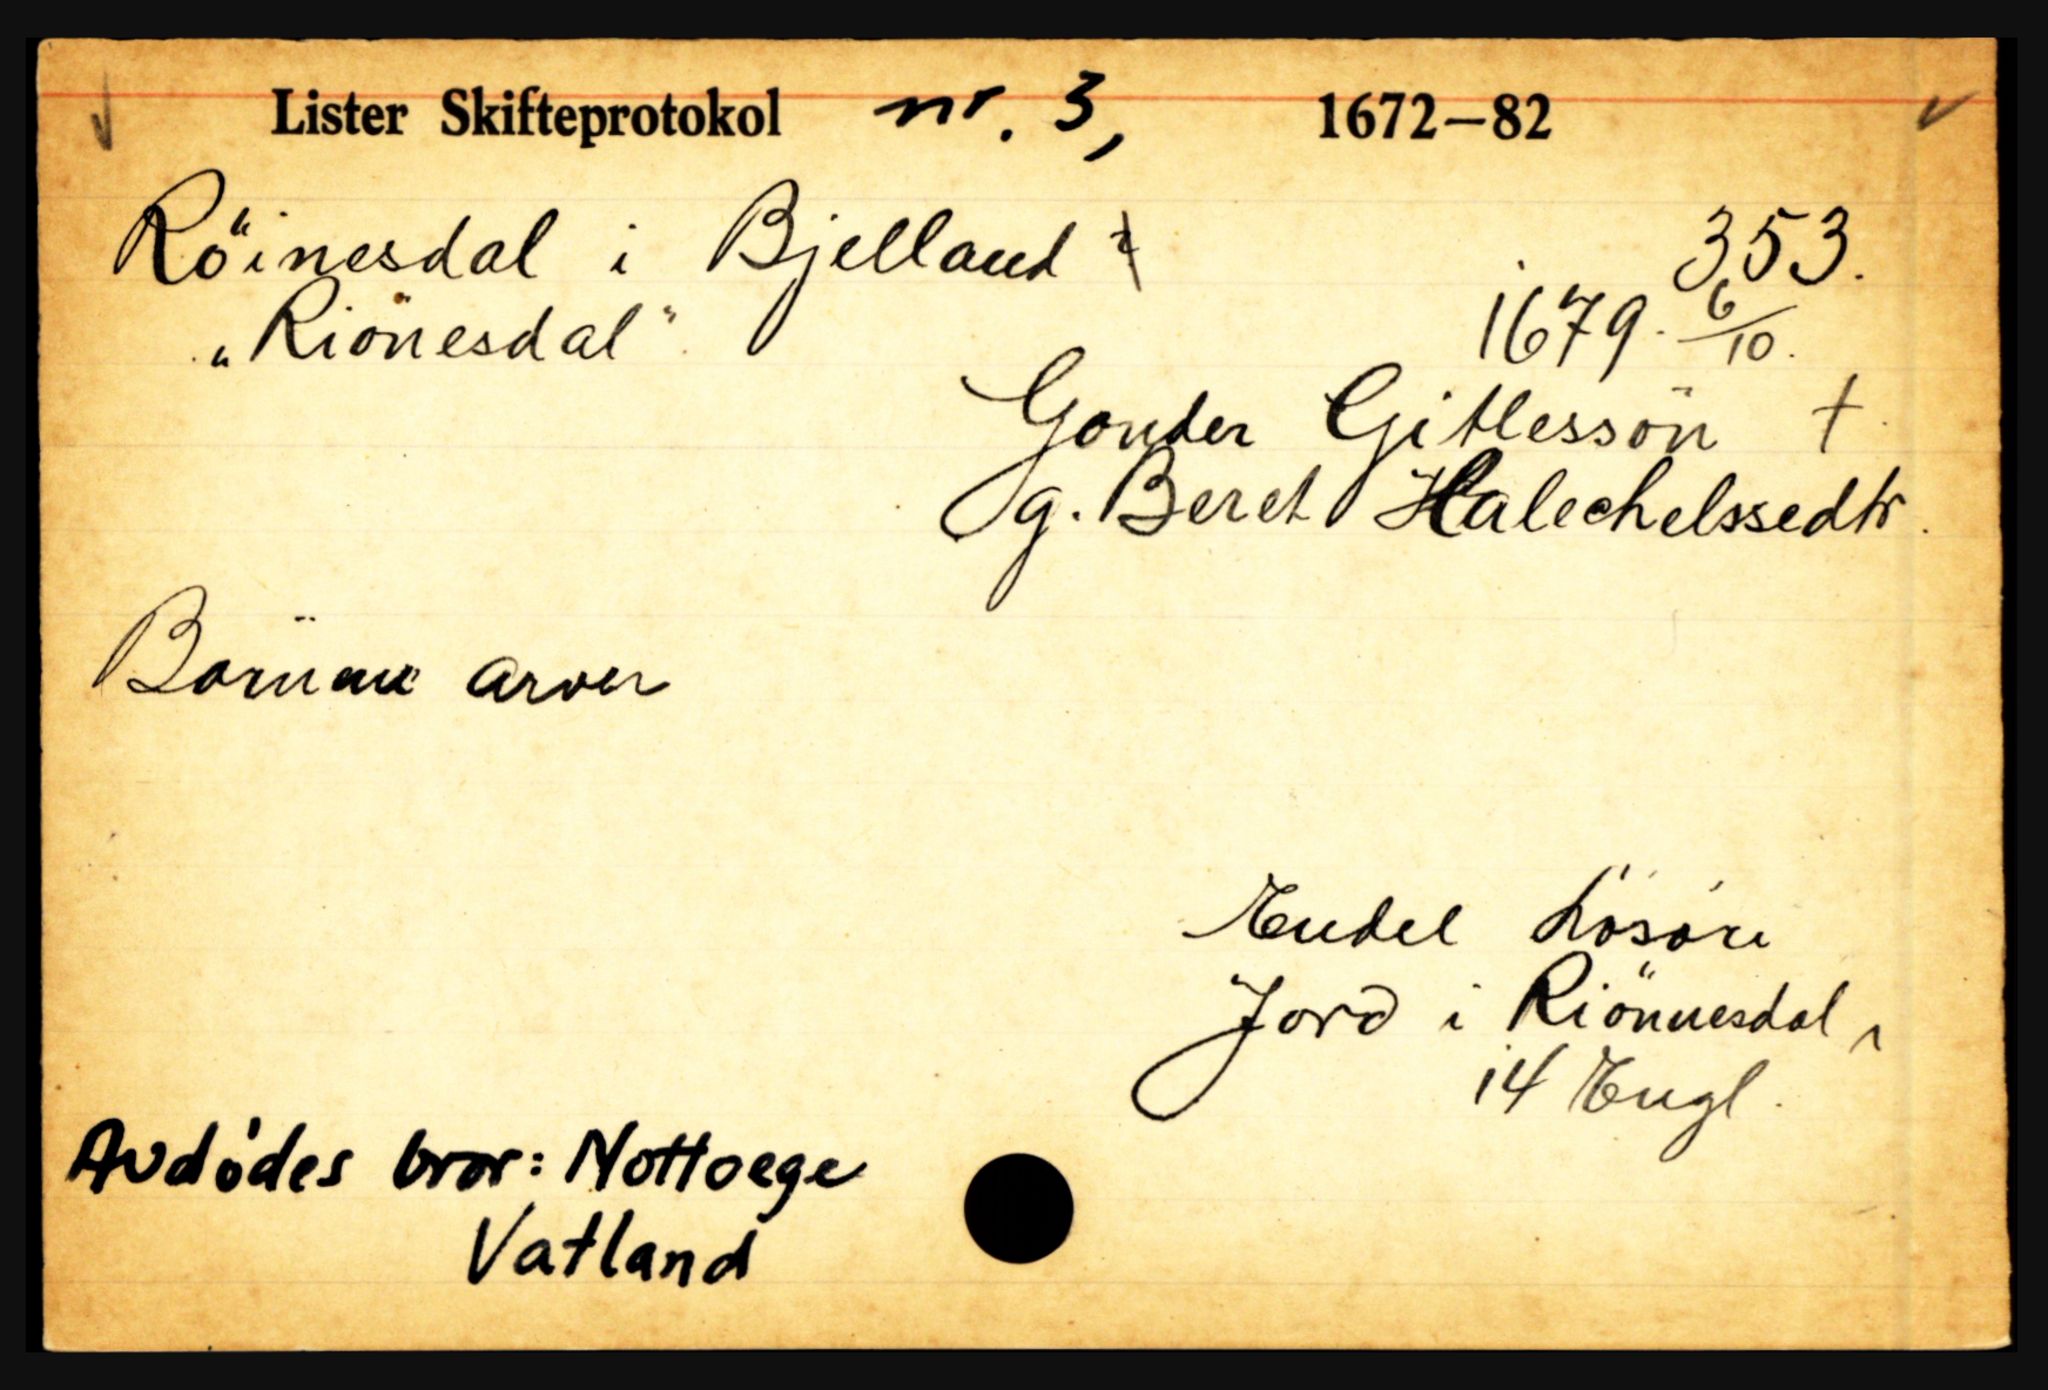 Lister Skifteprotokol nr. 3, 1672–82
Röinesdal i Bjelland 353.
"Riönesdal" 1679. 6/10.
Gonder Gitlessön †
g. Beret Halechelssedtr.
Börnene arver
Endel Lösöre
Jord i Riönnesdal,
14 Engl.
Avdödes bror: Nottoege
Vatland